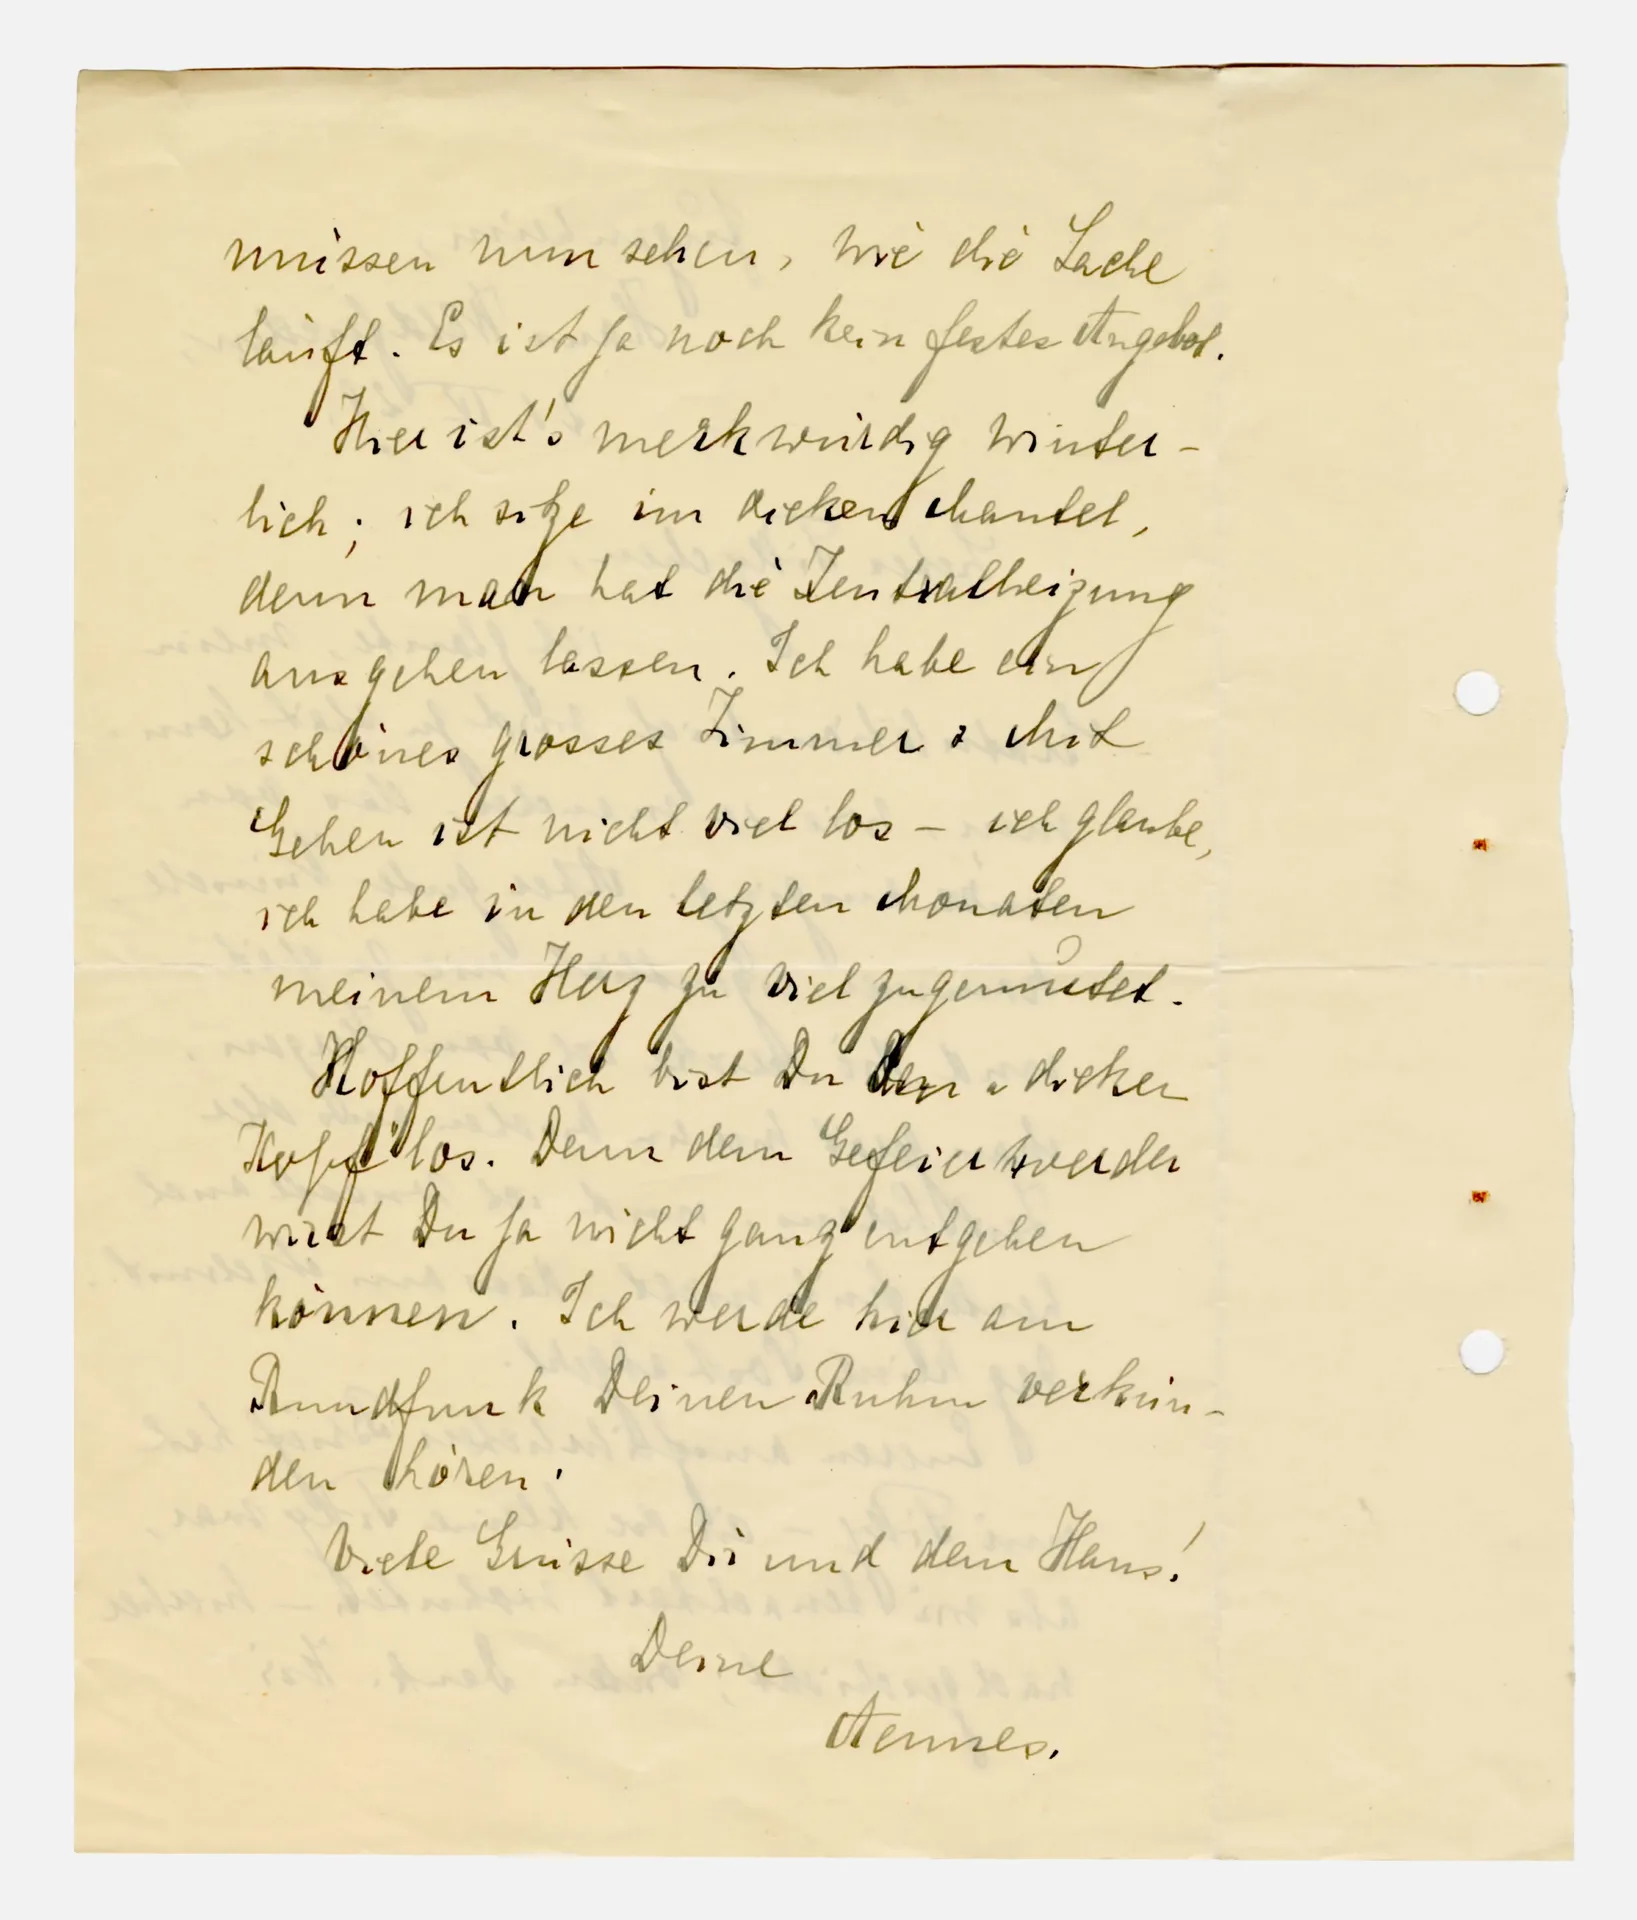 müssen nun sehen, wie die Sache
läuft. Es ist ja noch kein festes Angebot.
Hier ist's merkwürdig winter-
lich; ich sitze im dicken Mantel,
denn man hat die Zentralheizung
ausgehen lassen. Ich habe ein
schönes grosses Zimmer. Mit
Gehen ist nicht viel los – ich glaube,
ich habe in den letzten Monaten
meinem Herz zu viel zugemutet.
Hoffentlich bist Du Den „dicken
Kopf" los. Denn dem Gefeiertwerden
wirst Du ja nicht ganz entgehen
können. Ich werde hier am
Rundfunk Deinen Ruhm verkün-
den hören.
Viele Grüsse Dir und dem Hans!
Deine
Aennes.